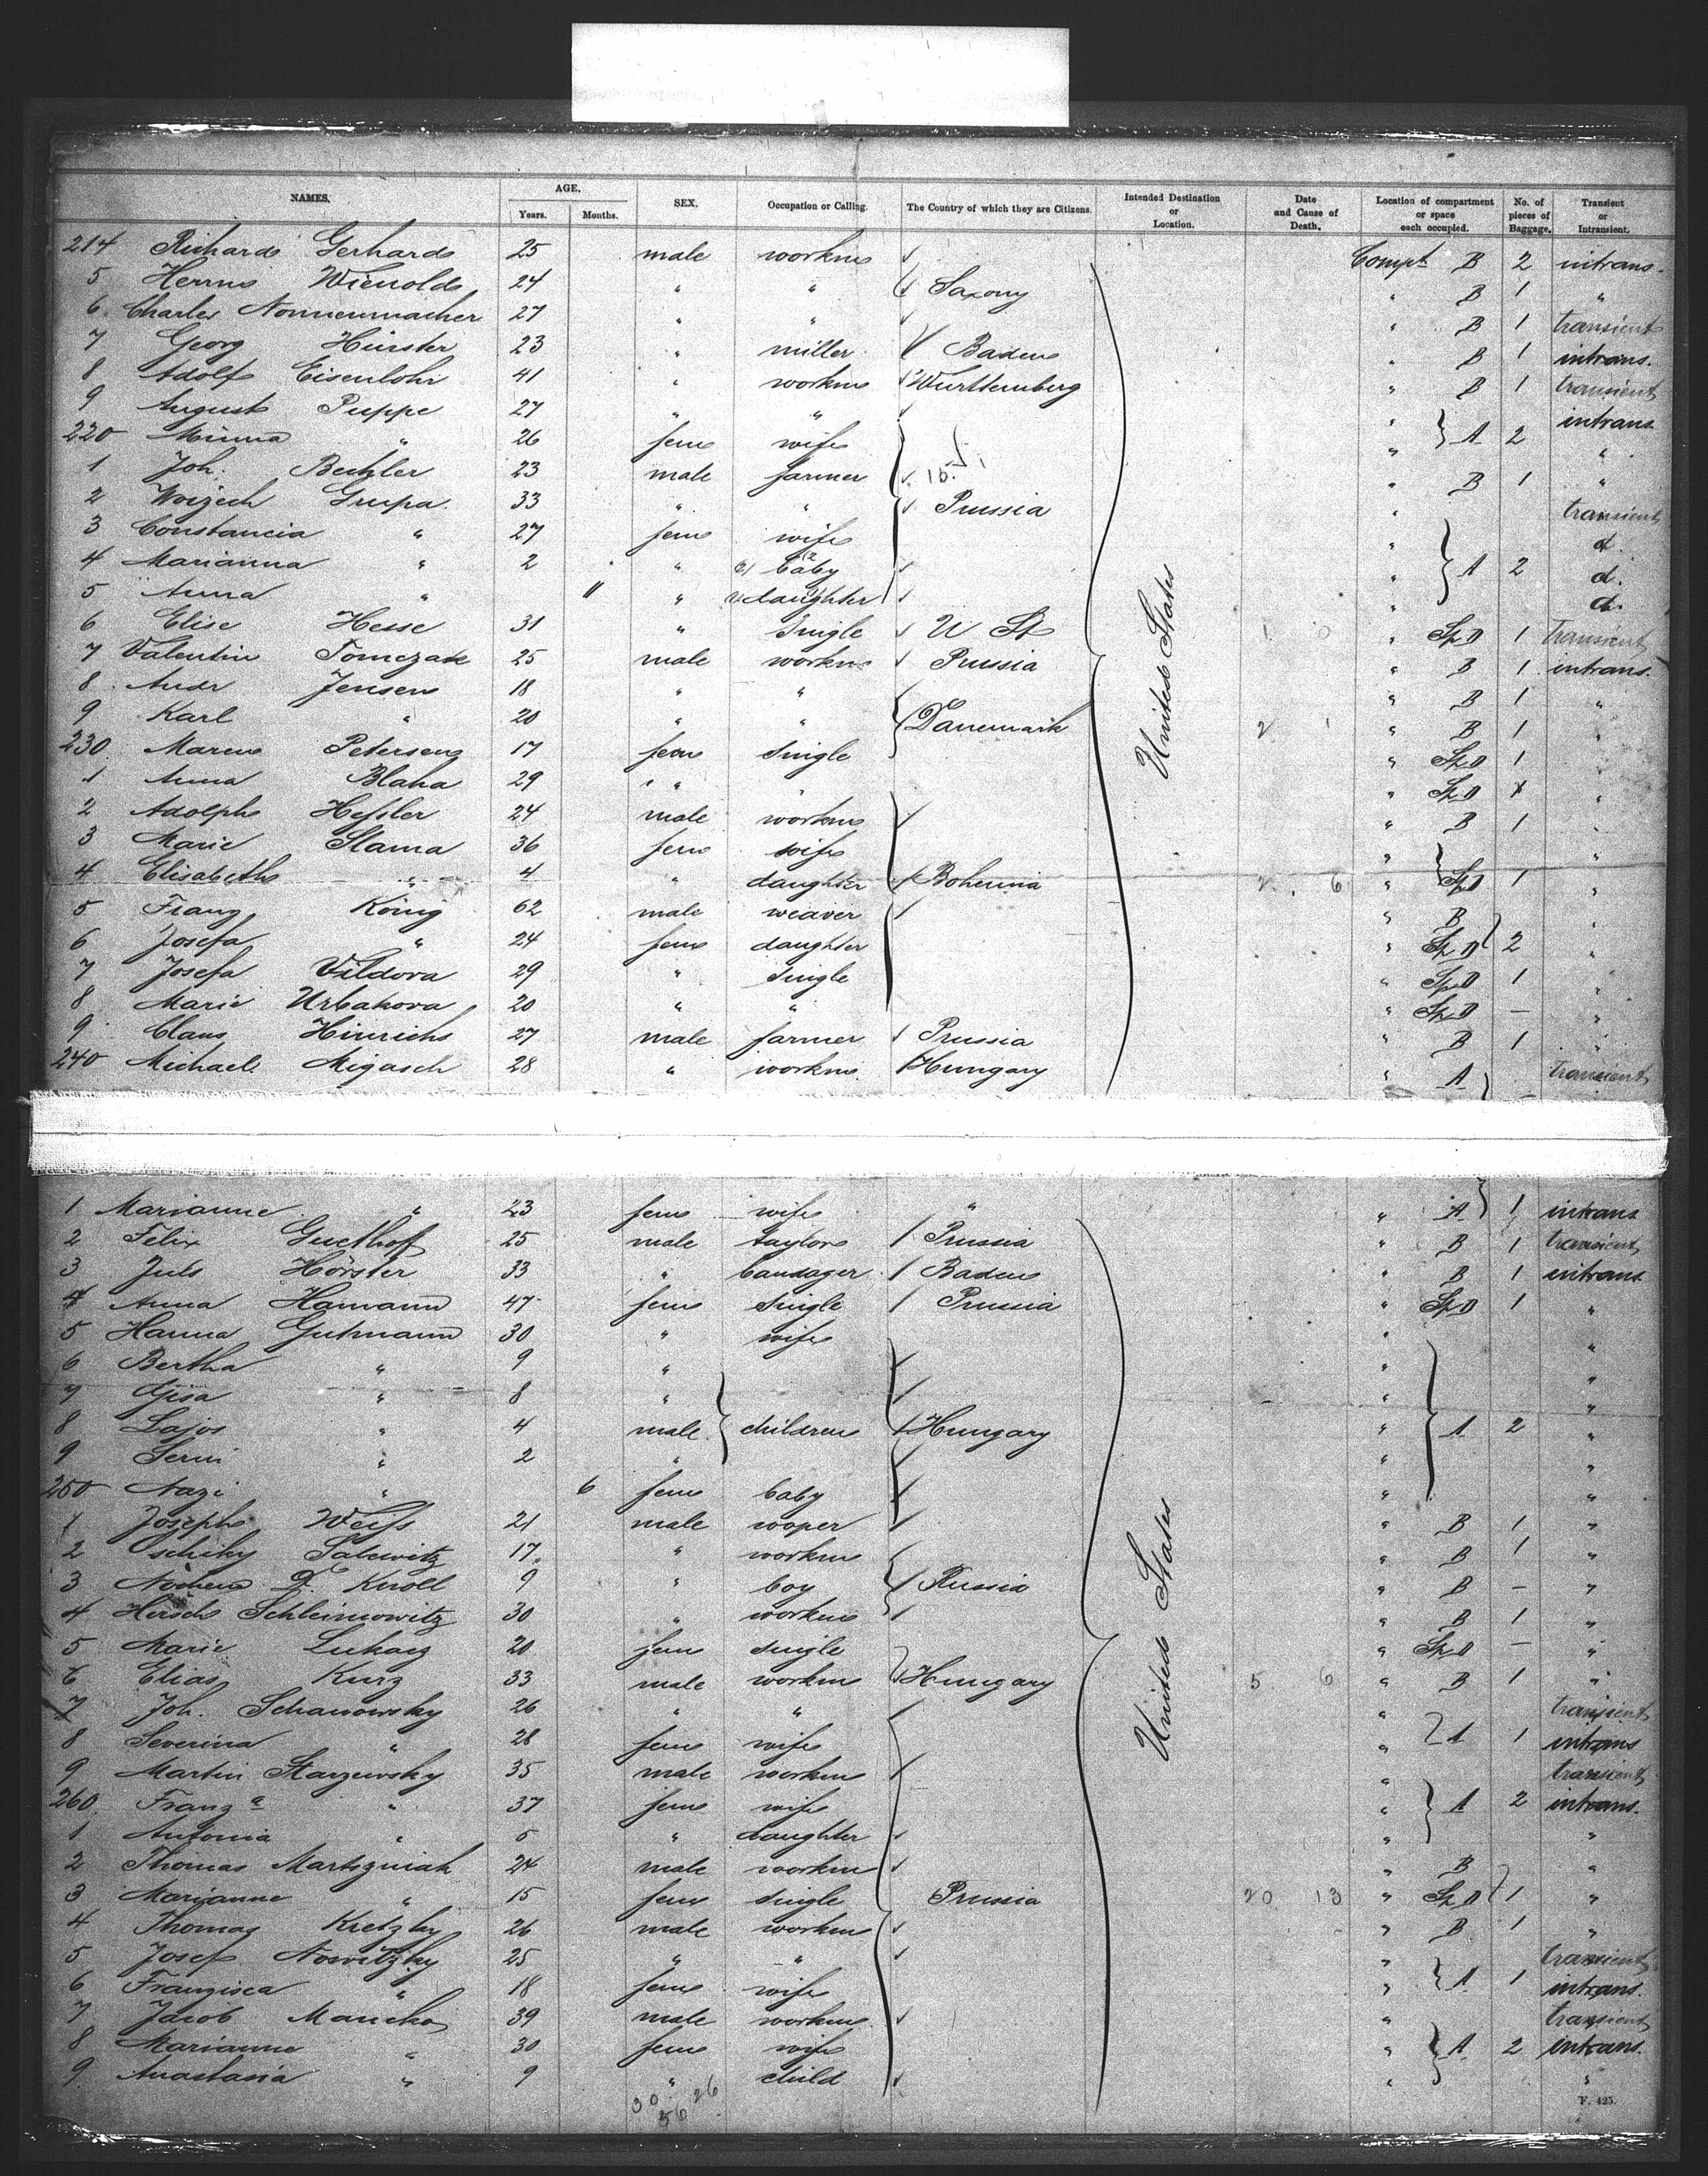 NAMES. AGE. SEX. Occupation or Calling. The Country of which they are Citizens. Intended Destination or Location. Date and Cause of Death. Location of compartment or space each occupied. No. of pieces of Baggage. Transient or Intransient.
Years. Months.
214 Richard Gerhards 25 male workm Compt B 2 intrans.
5 24 " " Saxony " B 1 "
6 Charles Nonnenmacher 27 " " " B 1 transient
7 Georg Hürster 23 " miller Baden " B 1 intrans.
8 Adolf Eisenlohr 41 " workm Württemberg " B 1 transient
9 August Puppe 27 " " " intrans
220 Minna " 26 fem wife " A 2 "
1 Joh. Bechler 23 male farmer 15. " B 1 "
2 Wojzech Grupa 33 " " Prussia " transient
3 Constancia " 27 fem wife " d.
4 Marianna " 2 " baby " A 2 d.
5 Anna " 11 " daughter " d.
6 Elise Hesse 31 " Single U St " Sp D 1 Transient
7 Valentin Tomczak 25 male workm Prussia " B 1 intrans.
8 Andr Jensen 18 " " " B 1 "
9 Karl " 20 " " Danemark 2 1 " B 1 "
230 Maren Petersen 17 fem Single " Sp D 1 "
1 Anna Blaha 29 " " " Sp D "
2 Adolph Heßler 24 male workm " B 1 "
3 Marie Slama 36 fem wife " "
4 Elisabeth " 4 " daughter Bohemia 2 6 " Sp D 1 "
5 Franz König 62 male weaver " B "
6 Josefa " 24 fem daughter " Sp D 2 "
7 Josefa Vildova 29 " Single " Sp D 1 "
8 Marie Urbakova 20 " " " Sp D — "
9 Claus Hinrichs 27 male farmer Prussia " B 1 "
240 Michael Migasch 28 " workm Hungary " A transient
United States
1 Marianne " 23 fem wife " " A 1 intrans
2 Felix Guethof 25 male taylor Prussia " B 1 transient
3 Juls Hörster 33 " bandager Baden " B 1 intrans
4 Anna Hamann 47 fem Single Prussia " Sp D 1 "
5 Hanna Gutmann 30 " wife " "
6 Bertha " 9 " " "
7 Gisa " 8 " " "
8 Lajos " 4 male children Hungary " A 2 "
9 Serin " 2 " " "
250 Nazi " 6 fem baby " "
1 Joseph Weiß 21 male cooper " B 1 "
2 Salewitz 17 " workm " B 1 "
3 Knoll 9 " boy Russia " B — "
4 Hirsch Schleimowitz 30 " workm " B 1 "
5 Marie Lukacz 20 fem Single " Sp D — "
6 Elias Kurz 33 male workm Hungary 5 6 " B 1 "
7 Joh. Schanowsky 26 " " " transient
8 Severina " 28 fem wife " A 1 intrans
9 Martin Starzewsky 35 male workm " transient
260 Franza " 37 fem wife " A 2 intrans.
1 Antonia " 5 " daughter " "
2 Thomas Martszniak 24 male workm " B "
3 Marianne " 15 fem Single Prussia 20 13 " Sp D 1 "
4 Thomas Kietzky 26 male workm " B 1 "
5 Josef Nowitzky 25 " " " transient
6 Franzisca " 18 fem wife " A 1 intrans.
7 Jacob Mancko 39 male workm " transient
8 Marianne " 30 fem wife " A 2 intrans.
9 Anastasia " 9 " child " "
United States
30 26
56
F. 425.